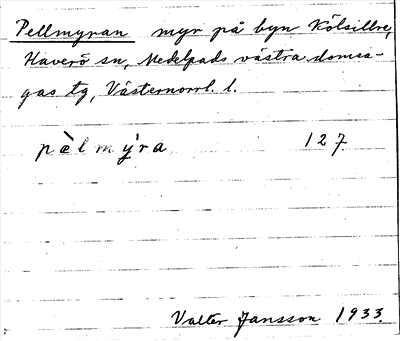 Pellmyran myr på byn Kölsillre,
Haverö sn, Medelpads västra domsa-
gas tg, Västernorrl. l.
pæ̀lmy̌ra 127
Valter Jansson 1933.